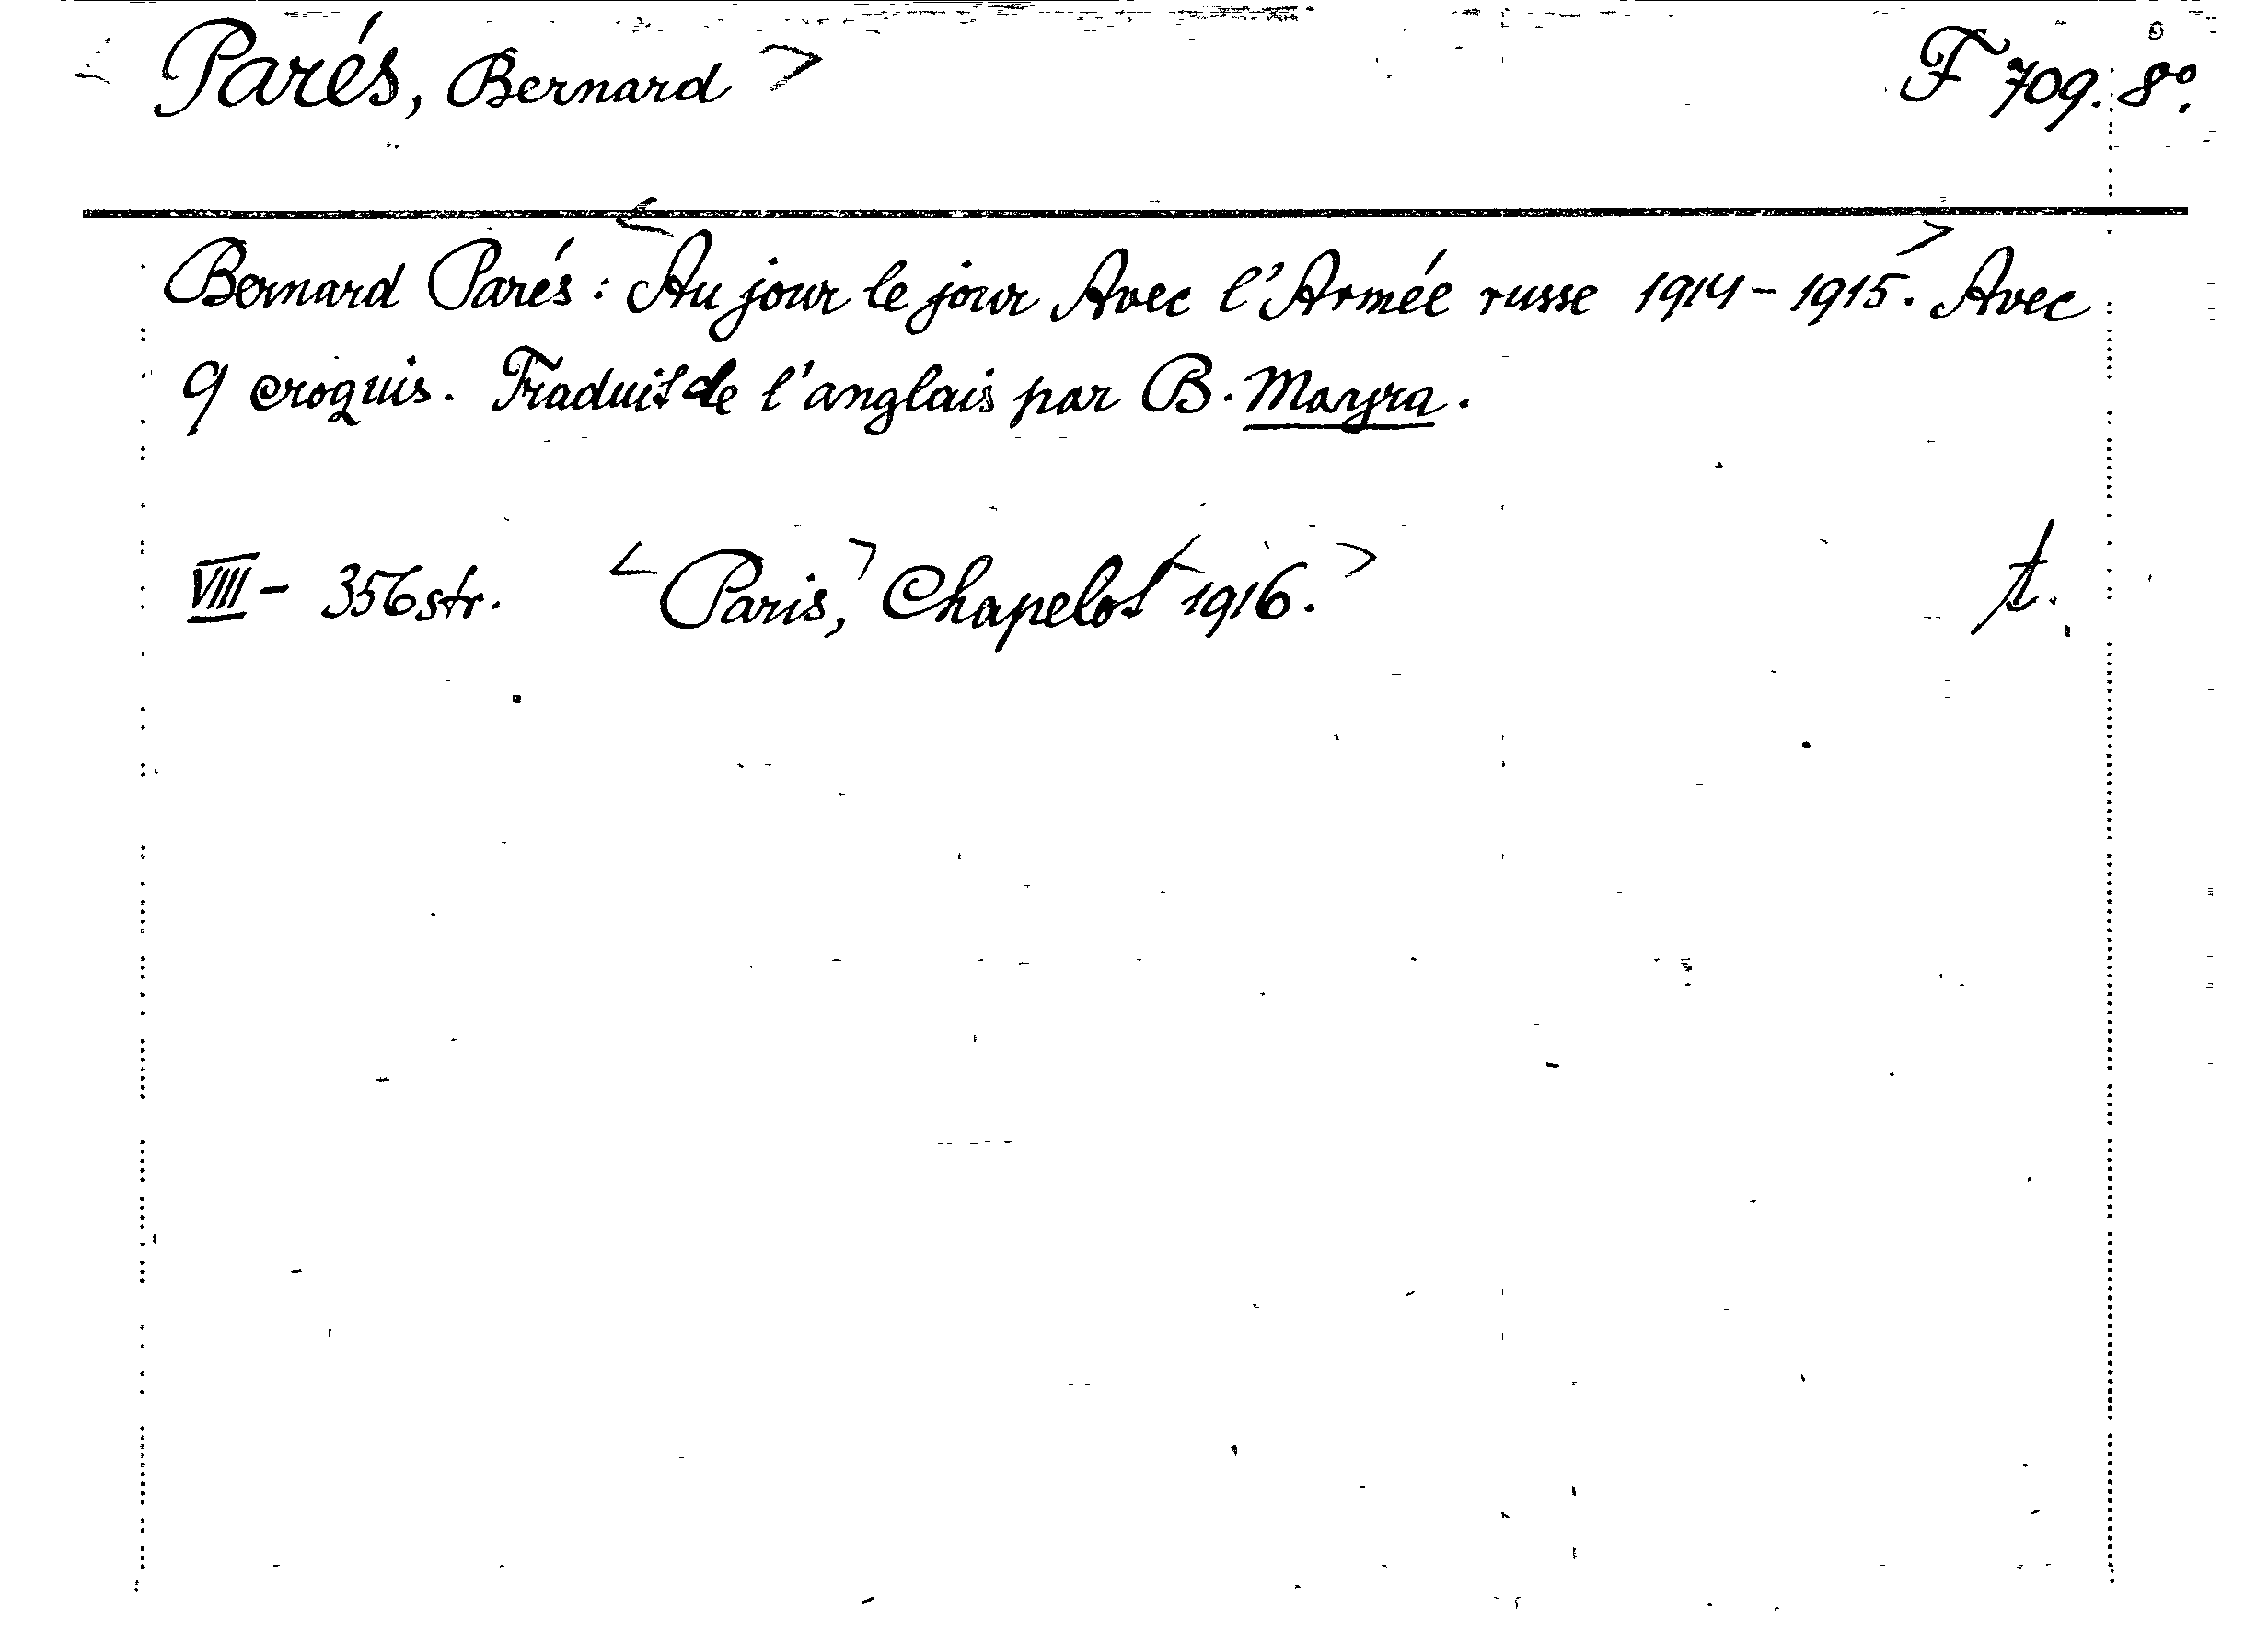 Parés, Bernard > F 709. 8°.
Bernard Parés: <Au jour le jour Avec l'Armée russe 1914-1915.> Avec
9 croquis. Traduit de l'anglais par B. Mayra.
VIII - 356 str. <Paris,> Chapelot <1916.> t.